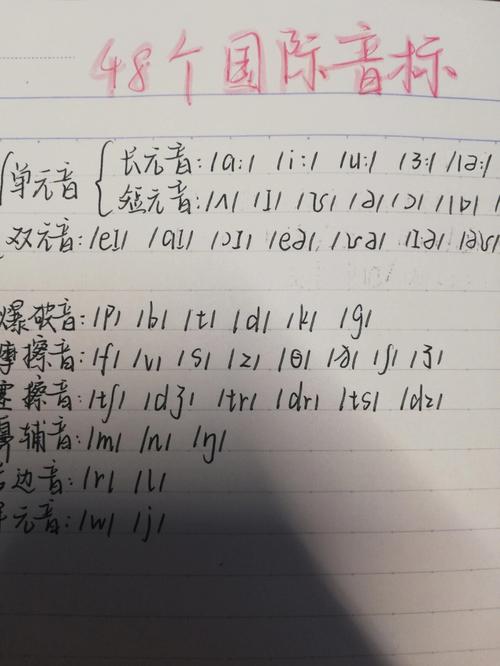 48个国际音标
单元音
长元音: /ɑ:/ /i:/ /u:/ /ɜ:/ /ə:/
短元音: /ʌ/ /ɪ/ /ʊ/ /ə/ /ɔ/ /ɒ/
双元音: /eɪ/ /aɪ/ /ɔɪ/ /eə/ /ʊə/ /ɪə/ /əʊ/
爆破音: /p/ /b/ /t/ /d/ /k/ /g/
摩擦音: /f/ /v/ /s/ /z/ /θ/ /ð/ /ʃ/ /ʒ/
塞擦音: /tʃ/ /dʒ/ /tr/ /dr/ /ts/ /dz/
鼻辅音: /m/ /n/ /ŋ/
边音: /r/ /l/
元音: /w/ /j/